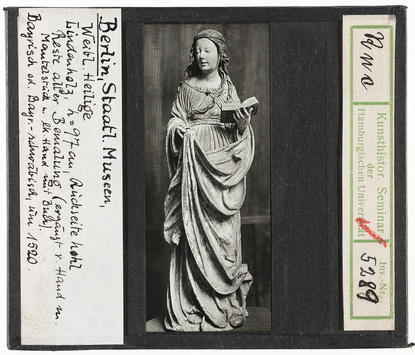 Berlin, Staatl. Museen,
Weibl. Heilige
Lindenholz, h = 97 cm Rückseite hohl
Reste alter Bemalung (ergänzt r. Hand m.
Mantelstück u. lk Hand mit Buch).
Bayrisch od. Bayr.-schwäbisch, um 1520.
Kunsthistor. Seminar
der
Hamburgischen Universität
Inv.-Nr.
5289